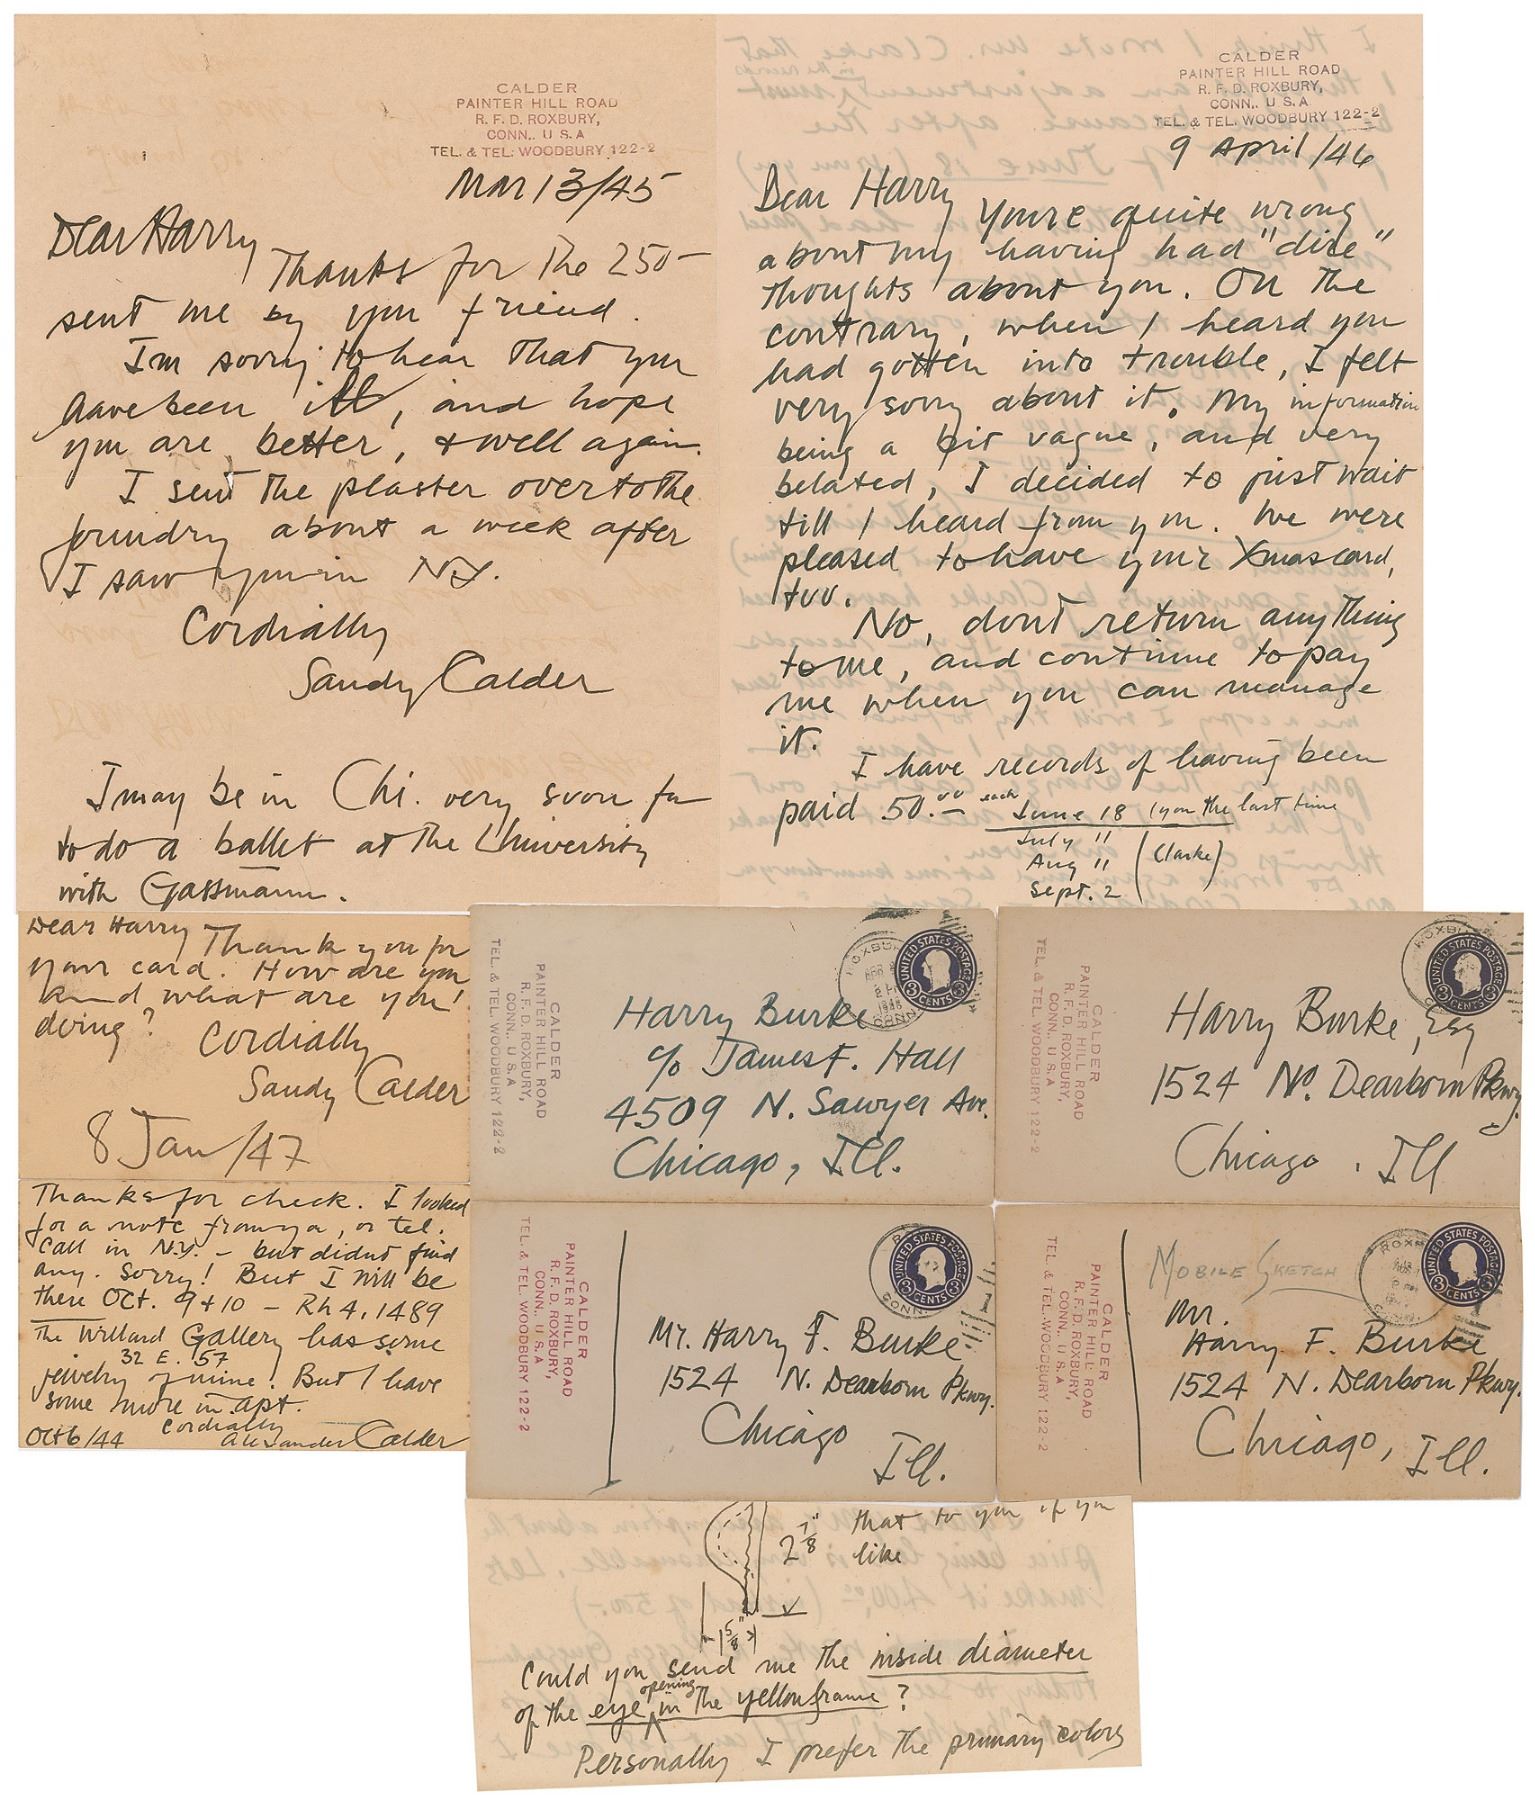 CALDER
PAINTER HILL ROAD
R. F. D. ROXBURY,
CONN., U S A
TEL. & TEL. WOODBURY 122-2
Mar 13/45
Dear Harry
Thanks for the 250-
sent me by you friend.
I'm sorry to hear that you
have been ill, and hope
you are better, & well again.
I sent the plaster over to the
foundry about a week after
I saw you in N.Y.
Cordially
Sandy Calder
I may be in Chi. very soon for
to do a ballet at the University
with Gassmann.
CALDER
PAINTER HILL ROAD
R. F. D. ROXBURY,
CONN., U S A
TEL. & TEL. WOODBURY 122-2
9 April/46
Dear Harry
You're quite wrong
about my having had "dire"
thoughts about you. On the
contrary, when I heard you
had gotten into trouble, I felt
very sorry about it. My information
being a bit vague, and very
belated, I decided to just wait
till I heard from you. We were
pleased to have your Xmas card,
too.
No, don't return anything
to me, and continue to pay
me when you can manage
it.
I have records of having been
paid 50.00 each June 18 (you the last time
July "
Aug "
Sept. 2
(Clarke)
Dear Harry Thank you for
your card. How are you
and what are you
doing?
Cordially
Sandy Calder
8 Jan/47
Thanks for check. I looked
for a note from ya, or tel.
call in N.Y. - but didnt find
any. Sorry! But I will be
there Oct. 9 + 10 - Rh 4, 1489
The Willard Gallery has some
32 E. 57
jewelry of mine. But I have
some more in apt.
Cordially
Oct 6/44 Alexander Calder
CALDER
PAINTER HILL ROAD
R. F. D. ROXBURY,
CONN., U S A
TEL. & TEL. WOODBURY 122-2
UNITED STATES POSTAGE
3 CENTS 3
Harry Burke
c/o James F. Hall
4509 N. Sawyer Ave.
Chicago, Ill.
CALDER
PAINTER HILL ROAD
R. F. D. ROXBURY,
CONN., U S A
TEL. & TEL. WOODBURY 122-2
UNITED STATES POSTAGE
3 CENTS 3
Harry Burke, Esq
1524 No. Dearborn Pkwy.
Chicago, Ill
CALDER
PAINTER HILL ROAD
R. F. D. ROXBURY,
CONN., U S A
TEL. & TEL. WOODBURY 122-2
UNITED STATES POSTAGE
3 CENTS 3
Mr. Harry F. Burke
1524 N. Dearborn Pkwy.
Chicago
Ill.
CALDER
PAINTER HILL ROAD
R. F. D. ROXBURY,
CONN., U S A
TEL. & TEL. WOODBURY 122-2
UNITED STATES POSTAGE
3 CENTS 3
MOBILE SKETCH
Mr.
Harry F. Burke
1524 N. Dearborn Pkwy.
Chicago, Ill.
2 7/8" that to you if you
like
1 5/8"
Could you send me the inside diameter
of the eye opening in the yellow frame?
Personally I prefer the primary colors